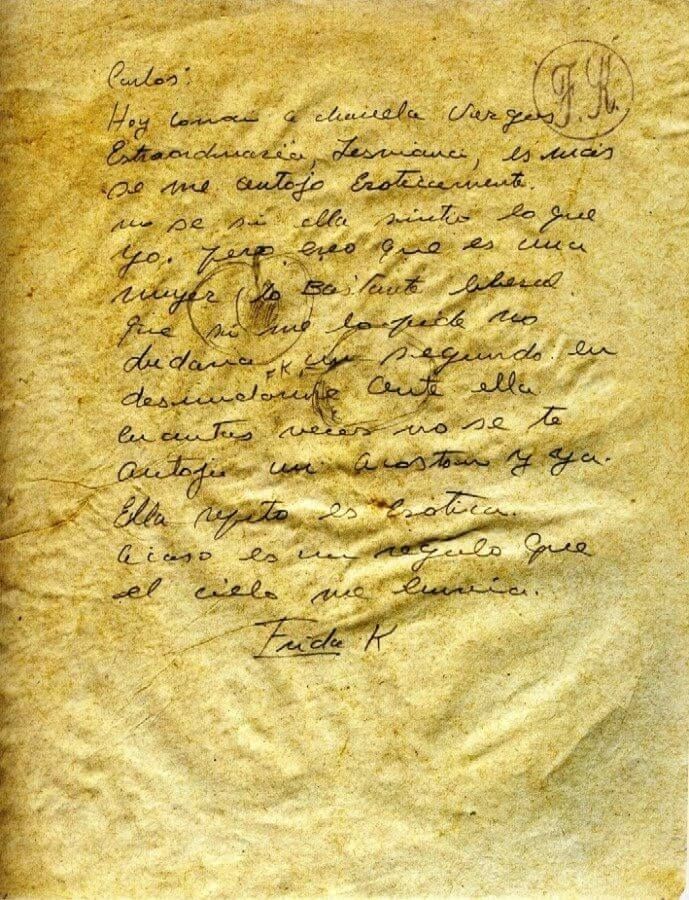 F. K.
Carlos:
Hoy conocí a chavela Vargas.
Extraordinaria, Lesviana, es más
se me antojo Eroticamente.
no se si ella sintio lo que
yo. pero creo que es una
mujer lo Bastante liberal
que si me lo pide no
dudaria un segundo en
F.K.
desnudarme ante ella
cuantas veces no se te
antoja un acoston y ya.
Ella repito es Erotica.
acaso es un regalo que
el cielo me envia.
Frida K